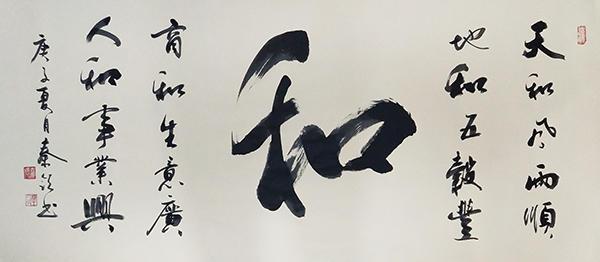 天和风雨順
地和五穀豐
和
商和生意廣
人和事業興
庚子夏月秦书